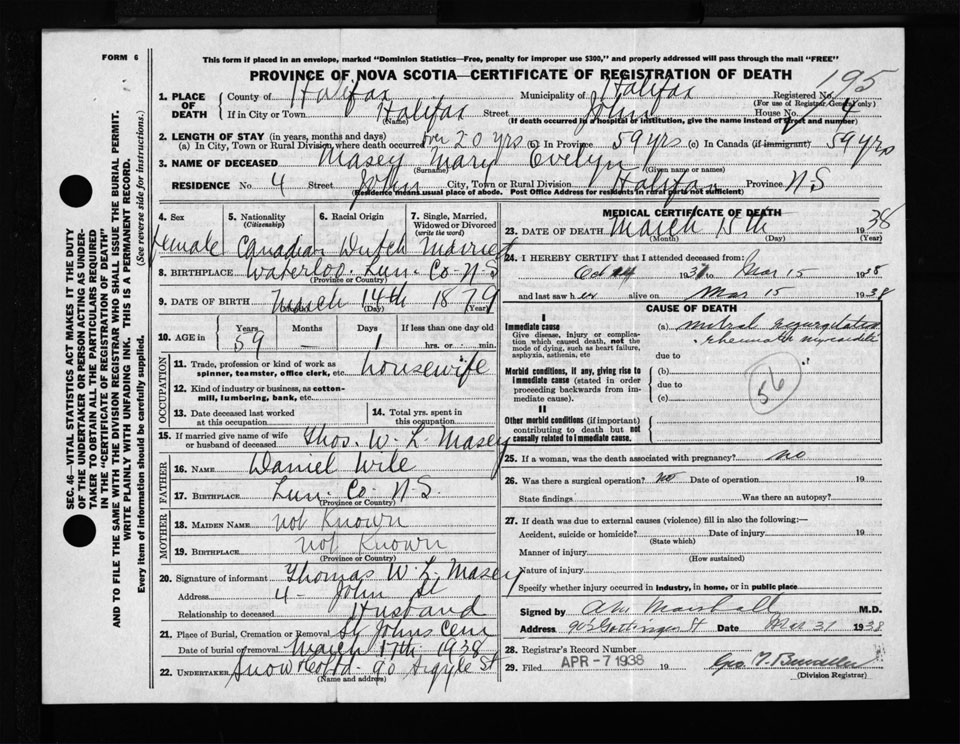 FORM 6
This form if placed in an envelope, marked "Dominion Statistics—Free, penalty for improper use $300," and properly addressed will pass through the mail "FREE"
PROVINCE OF NOVA SCOTIA—CERTIFICATE OF REGISTRATION OF DEATH
195
1. PLACE OF DEATH County of Halifax Municipality of Halifax Registered No.
(For use of Registrar General only)
If in City or Town Halifax Street John House No. 4
(Name) (If death occurred in a hospital or institution, give the name instead of street and number)
2. LENGTH OF STAY (in years, months and days)
(a) In City, Town or Rural Division where death occurred over 20 yrs (b) In Province 59 yrs (c) In Canada (if immigrant) 59 yrs
3. NAME OF DECEASED Masey Mary Evelyn
(Surname) (Given name or names)
RESIDENCE No 4 Street John City, Town or Rural Division Halifax Province N S
(Residence means usual place of abode. Post Office Address for residents in rural parts not sufficient)
4. Sex 5. Nationality (Citizenship) 6. Racial Origin 7. Single, Married, Widowed or Divorced (write the word)
female Canadian Dutch Married
8. BIRTHPLACE Waterloo. Lun. Co. N-S
(Province or Country)
9. DATE OF BIRTH March 14th 1879
(Month) (Day) (Year)
10. AGE in Years Months Days If less than one day old
59 — 1 hrs. or min.
OCCUPATION
11. Trade, profession or kind of work as spinner, teamster, office clerk, etc. housewife
12. Kind of industry or business, as cotton-mill, lumbering, bank, etc.
13. Date deceased last worked at this occupation 14. Total yrs. spent in this occupation
15. If married give name of wife or husband of deceased Thos. W. L. Masey
FATHER
16. NAME Daniel Wile
17. BIRTHPLACE Lun. Co. N-S.
(Province or Country)
MOTHER
18. MAIDEN NAME not Known
19. BIRTHPLACE not Known
(Province or Country)
20. Signature of informant Thomas W. L. Masey
Address 4 - John St
Relationship to deceased Husband
21. Place of Burial, Cremation or Removal St Johns Cem
Date of burial or removal March 17th 1938
22. UNDERTAKER Snow & Co Ltd - 90 Argyle St
(Name and address)
MEDICAL CERTIFICATE OF DEATH
23. DATE OF DEATH March 15th 1938
(Month) (Day) (Year)
24. I HEREBY CERTIFY that I attended deceased from:
Oct 1937 to Mar 15 1938
and last saw her alive on Mar 15 1938
CAUSE OF DEATH
I
Immediate cause
Give disease, injury or complication which caused death, not the mode of dying, such as heart failure, asphyxia, asthenia, etc
(a) Mitral regurgitation
rheumatic myocarditis
due to
Morbid conditions, if any, giving rise to immediate cause (stated in order proceeding backwards from immediate cause).
(b)
due to
(c)
56
II
Other morbid conditions (if important) contributing to death but not causally related to immediate cause.
25. If a woman, was the death associated with pregnancy? no
26. Was there a surgical operation? No Date of operation 19
State findings Was there an autopsy?
27. If death was due to external causes (violence) fill in also the following:—
Accident, suicide or homicide? Date of injury 19
(State which)
Manner of injury
(How sustained)
Nature of injury
Specify whether injury occurred in industry, in home, or in public place
Signed by Marshall M.D.
Address 90 Gottingen St Date Mar 31 1938
28. Registrar's Record Number
29. Filed APR -7 1938 19 Geo.
(Division Registrar)
SEC. 46—VITAL STATISTICS ACT MAKES IT THE DUTY OF THE UNDERTAKER OR PERSON ACTING AS UNDERTAKER TO OBTAIN ALL THE PARTICULARS REQUIRED IN THE "CERTIFICATE OF REGISTRATION OF DEATH" AND TO FILE THE SAME WITH THE DIVISION REGISTRAR WHO SHALL ISSUE THE BURIAL PERMIT.
WRITE PLAINLY WITH UNFADING INK. THIS IS A PERMANENT RECORD.
Every item of information should be carefully supplied. (See reverse side for instructions.)